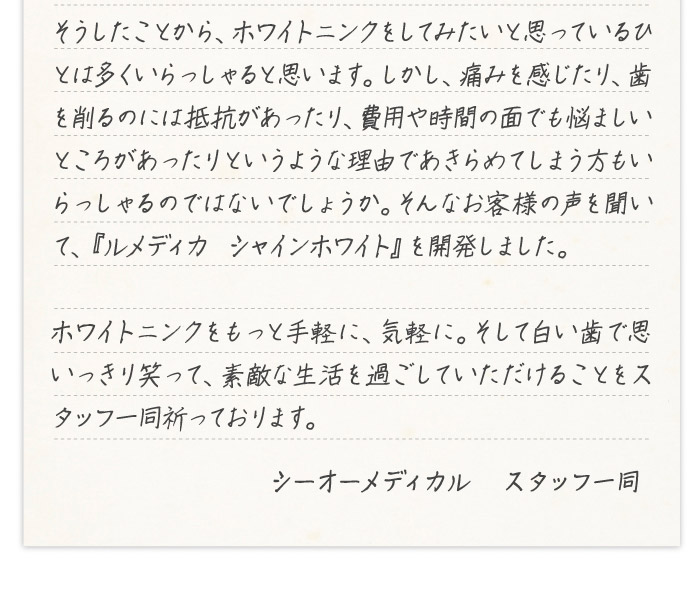 そうしたことから、ホワイトニンクをしてみたいと思っているひ
とは多くいらっしゃると思います。しかし、痛みを感じたり、歯
を削るのには抵抗があったり、費用や時間の面でも悩ましい
ところがあったりというような理由であきらめてしまう方もい
らっしゃるのではないでしょうか。そんなお客様の声を聞い
て、『ルメディカ　シャインホワイト』を開発しました。
ホワイトニンクをもっと手軽に、気軽に。そして白い歯で思
いっきり笑って、素敵な生活を過ごしていただけることをス
タッフ一同祈っております。
シーオーメディカル　スタッフ一同